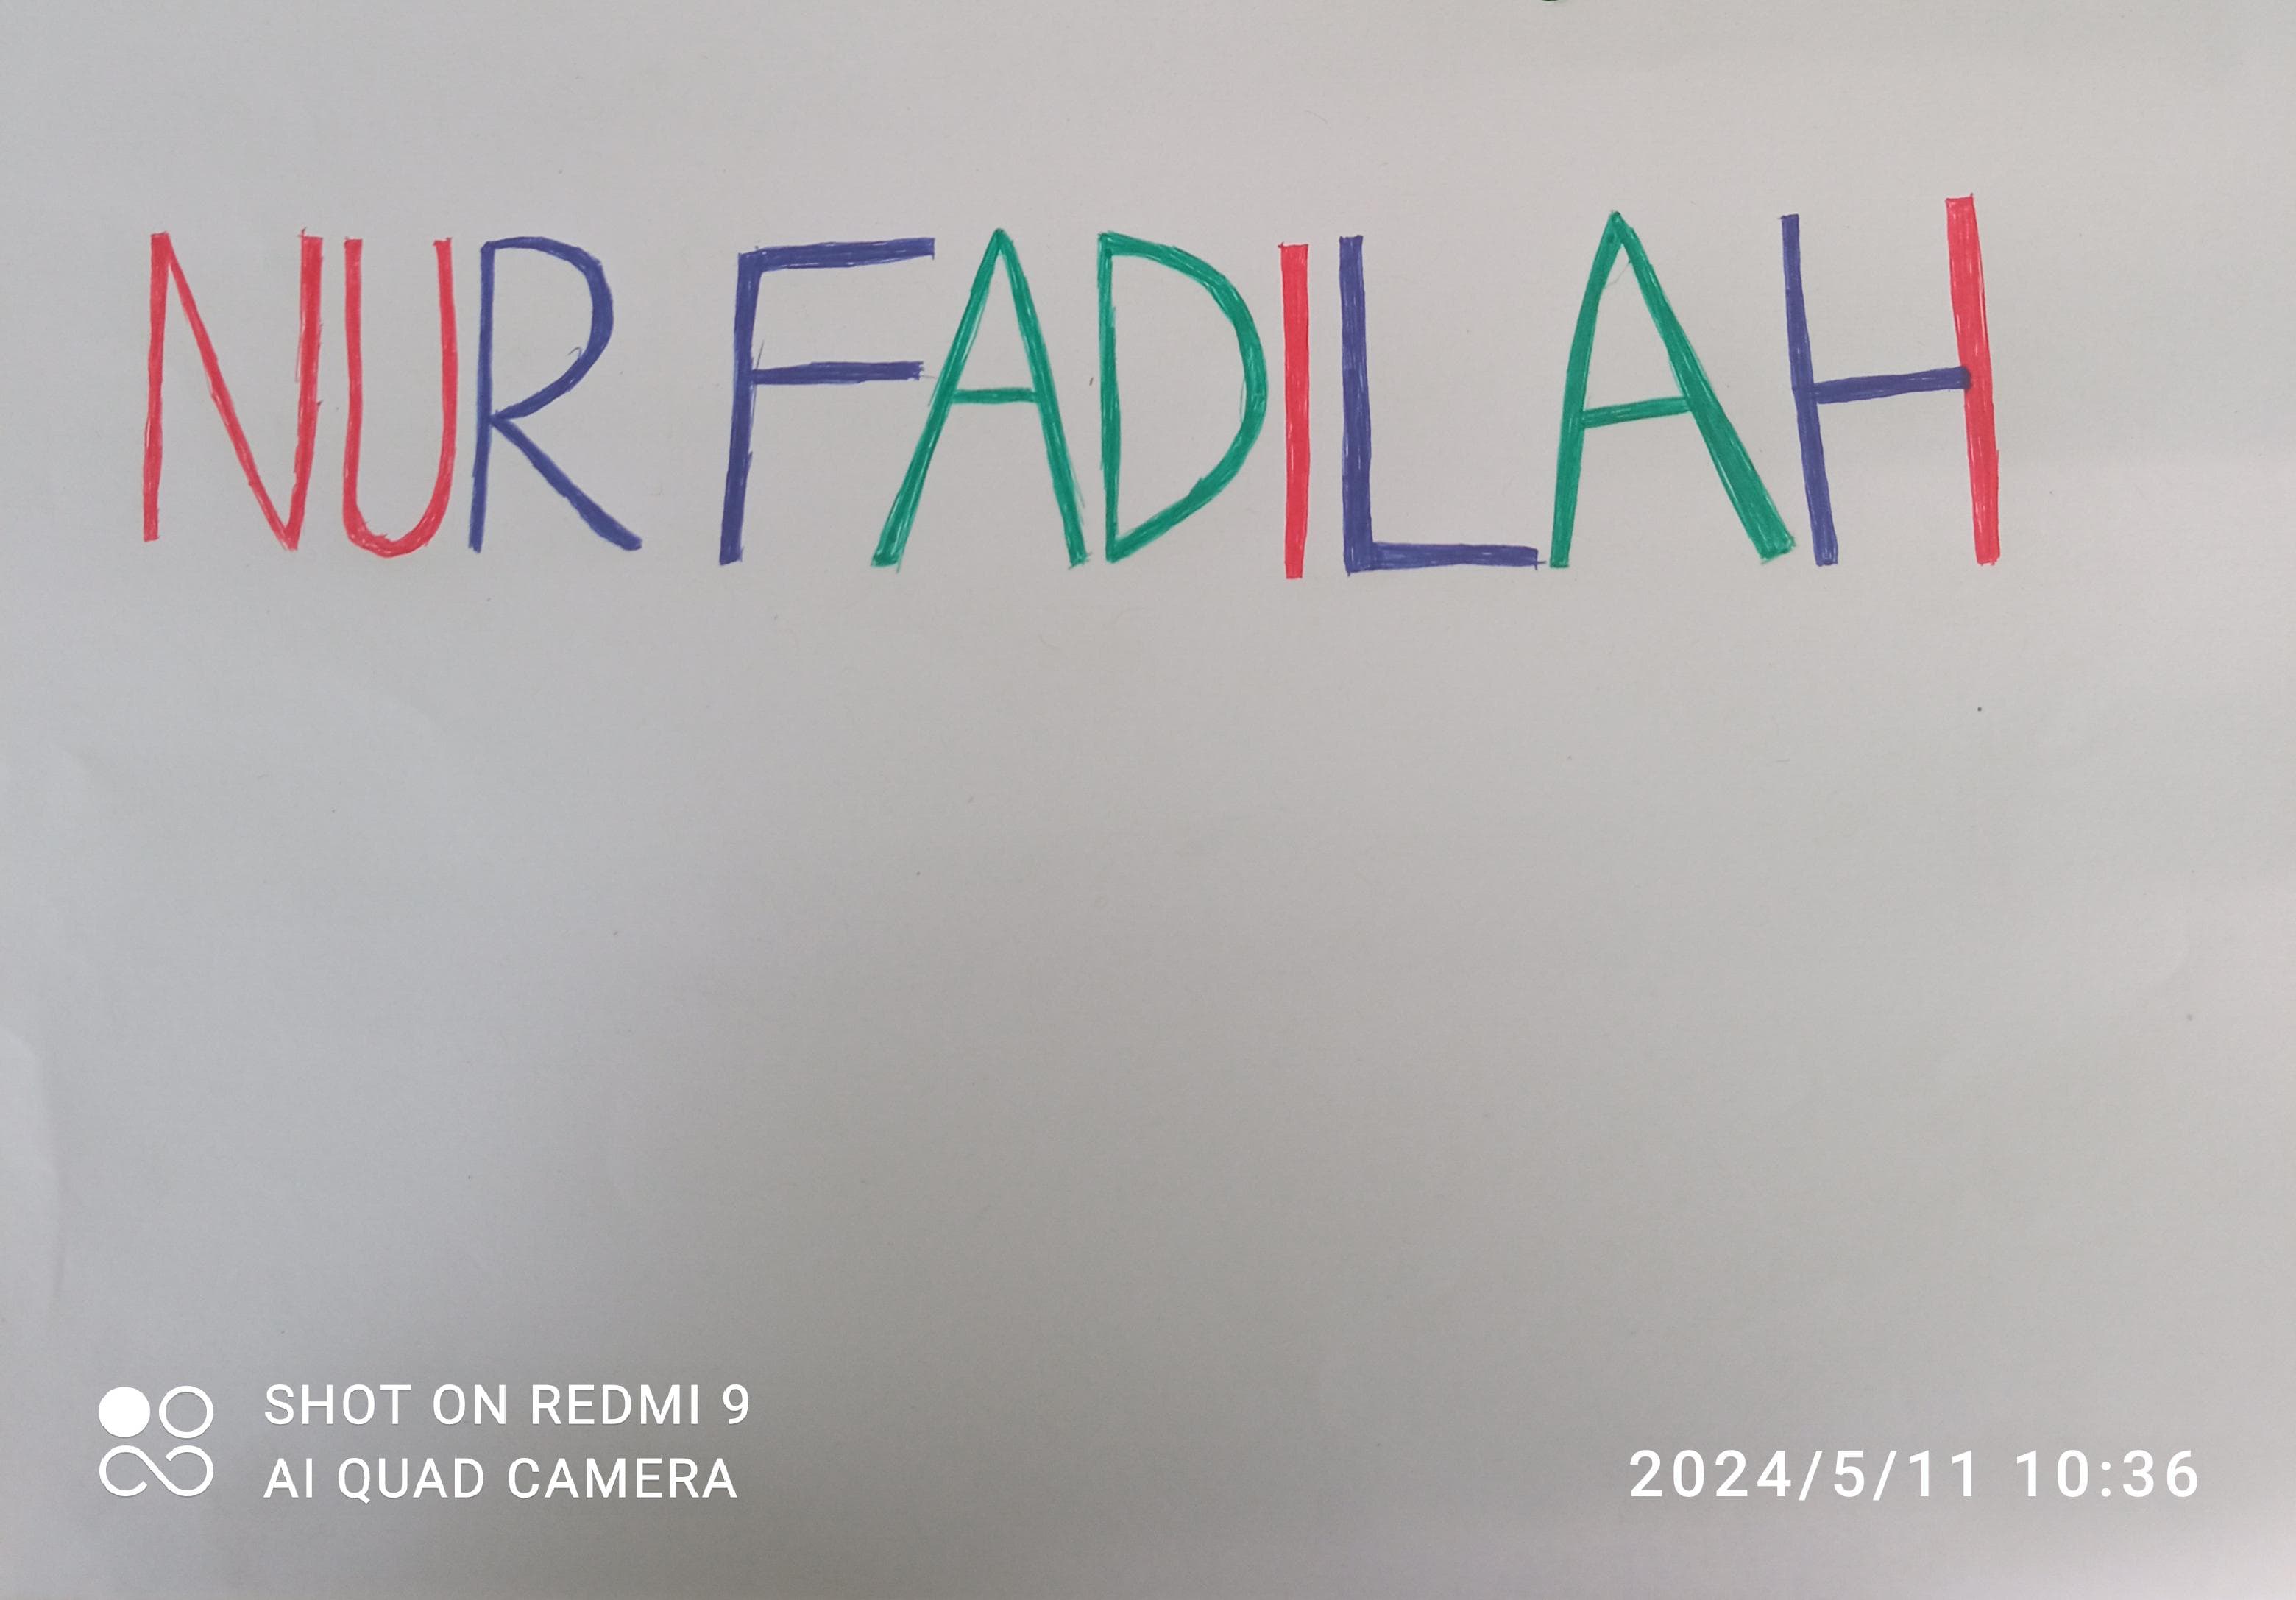 NUR FADILAH
SHOT ON REDMI 9
AI QUAD CAMERA
2024/5/11 10:36